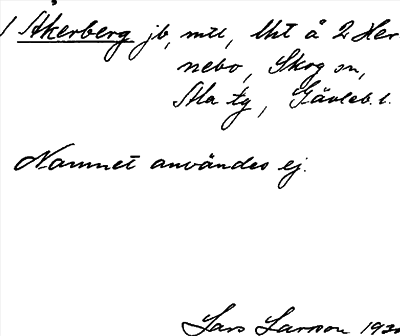 1 Åkerberg jb, mtl, Uht å 2 Her
nebo, Skog sn,
Ala tg, Gävleb. l.
Namnet användes ej.
Lars Larsson 193